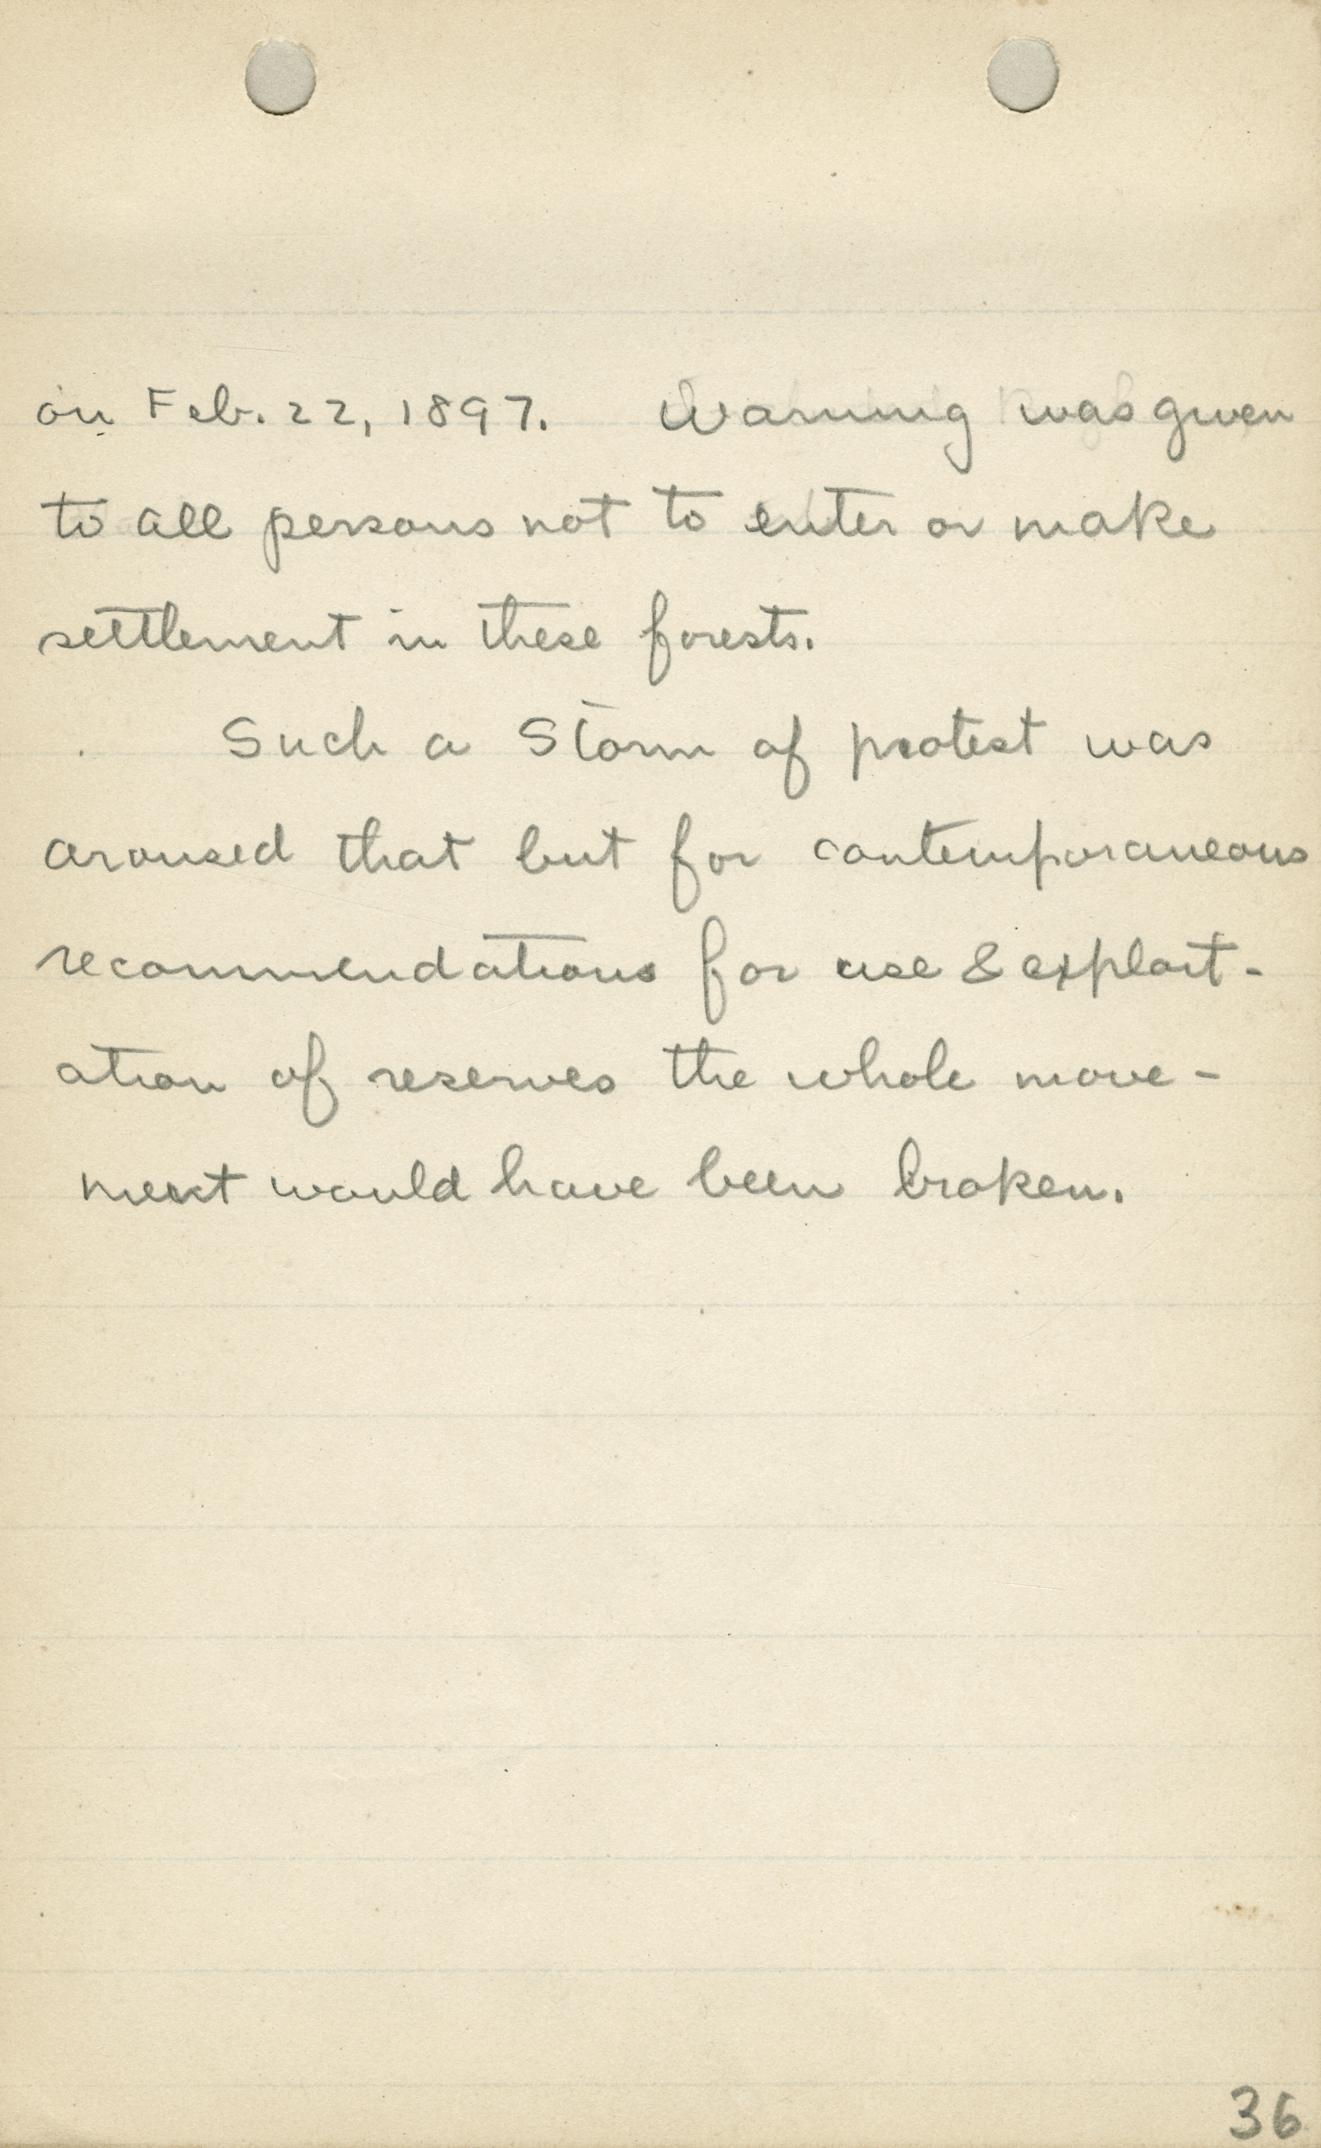 on Feb. 22, 1897. Warning was given
to all persons not to enter or make
settlement in these forests.
Such a storm of protest was
aroused that but for contemporaneous
recommendations for use & exploit-
ation of reserves the whole move-
ment would have been broken.
36